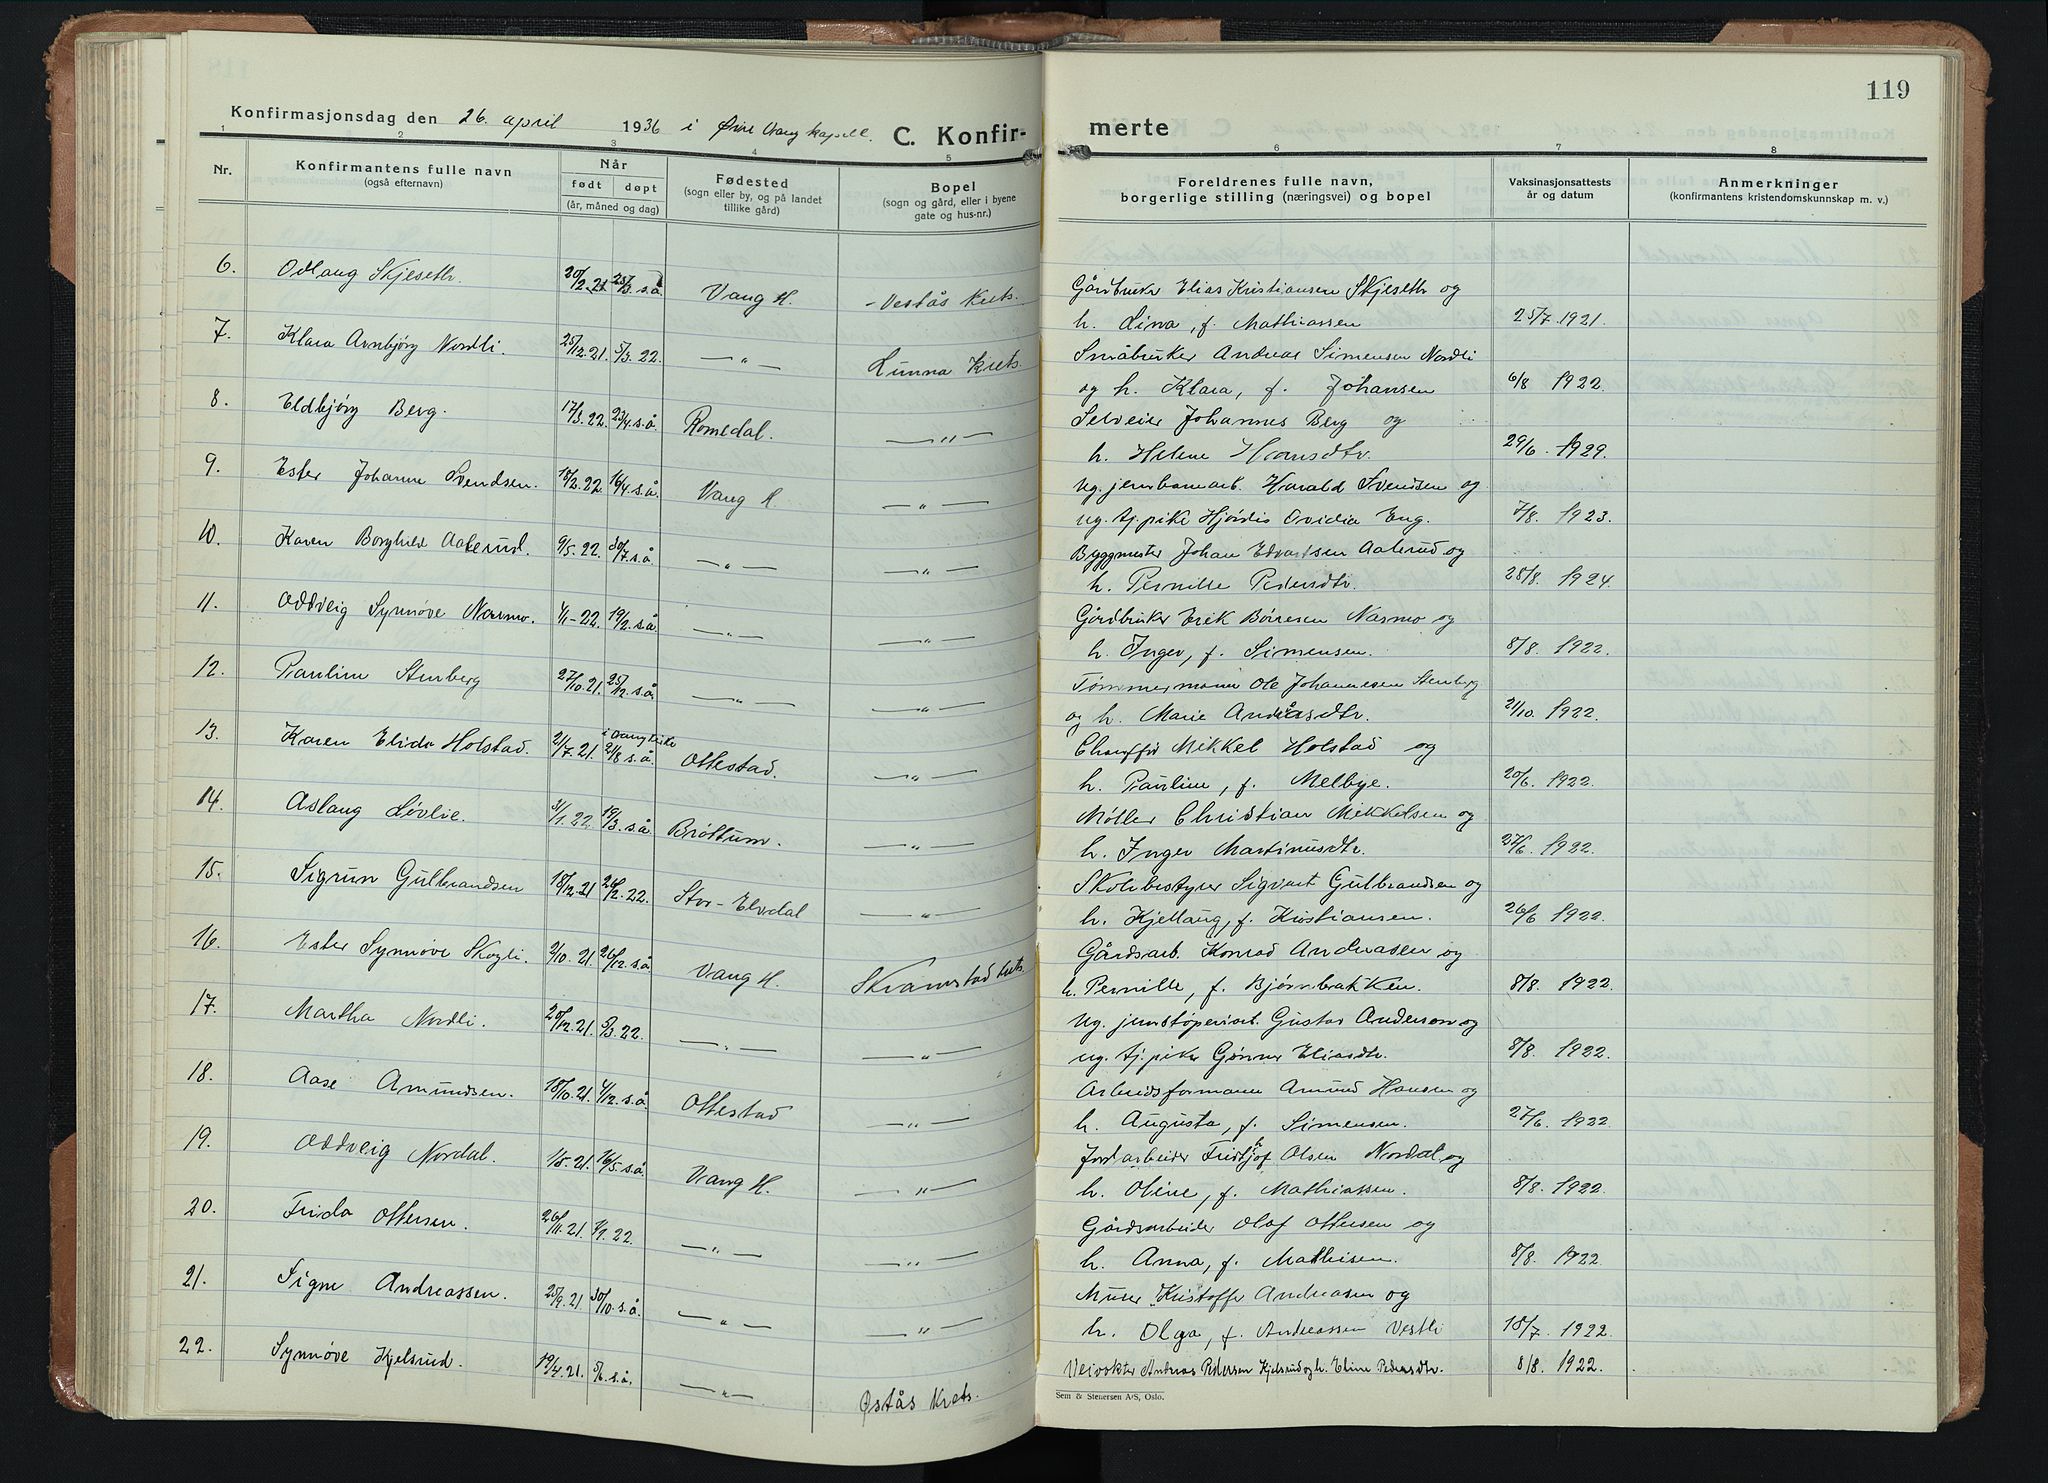 119
Konfirmasjonsdag den 26. april 1936 i Øvre Vang kapell. C. Konfir-
merte
1 2 3 4 5 6 7 8
Nr.
Konfirmantens fulle navn
(også efternavn)
Når
født døpt
(år, måned og dag)
Fødested
(sogn eller by, og på landet
tillike gård)
Bopel
(sogn og gård, eller i byene
gate og hus-nr.)
Foreldrenes fulle navn,
borgerlige stilling (næringsvei) og bopel
Vaksinasjonsattests
år og datum
Anmerkninger
(konfirmantens kristendomskunnskap m. v.)
6. Odlaug Skjeseth 20/2.21. s.å. Vang H. Vestås Krets.
Gårdbruker Elias Kristiansen Skjeseth og
h. Lina, f. Mathiassen 25/7.1921.
7. Klara Arnbjørg Nordli. 25/12.21. 5/3.22. — „ — Lunna Krets.
Småbruker Andreas Simensen Nordli
og h. Klara, f. Johansen 6/8 1922.
8. Eldbjørg Berg. 17/3.22. 23/4.s.å. Romedal. — „ —
Selveier Johannes Berg og
h. Helene Hansdtr. 29/6.1929.
9. Ester Johanne Svendsen. 18/2.22. 16/4.s.å. Vang H. — „ —
Ug. jernbanearb. Harald Svendsen og
ug. tj.pike Hjørdis Ovidia Eng. 7/8. 1923.
10. Karen Borghild Aaberud. 9/5.22. 30/7.s.å. — „ — — „ —
Byggmester Johan Edvartsen Aaberud og
h. Pernille Pedersdtr. 28/8. 1924.
11. Oddveig Synnøve Narmo. 1/1-22. 19/2.s.å. — „ — — „ —
Gårdbruker Erik Børresen Narmo og
h. Inger, f. Simensen. 8/8. 1922.
12. Pauline Stenberg 27/10.21. 25/12.s.å. — „ — — „ —
Tømmermann Ole Johannesen Stenberg
og h. Marie Andreasdtr. 21/10. 1922.
13. Karen Elida Holstad. 21/7.21. i Vang kirke 21/8 s.å. Ottestad. — „ —
Chauffør Mikkel Holstad og
h. Pauline, f. Melbye. 20/6. 1922.
14. Aslaug Løvlie. 31/1.22. 19/3.s.å. Brøttum. — „ —
Møller Christian Mikkelsen og
h. Inger Martinusdtr. 27/6. 1922.
15. Sigrun Gulbrandsen 18/12.21 26/2.22. Stor-Elvdal — „ —
Skolebestyrer Sigvart Gulbrandsen og
h. Kjellaug, f. Kristiansen. 26/6 1922.
16. Ester Synnøve Skogli. 2/10.21. 26/12.s.å Vang H. Skramstad krets.
Gårdsarb. Konrad Andreasen og
h. Pernille, f. Bjørnbrakken. 8/8. 1922.
17. Martha Nordli. 20/12.21. 5/3.22. — „ — — „ —
Ug. jernstøperiarb. Gustav Anderson og
ug. tj.pike Gunnor Eliasdtr. 8/8. 1922.
18. Aase Amundsen. 18/10.21. 4/12.s.å. Ottestad — „ —
Arbeidsformann Amund Hansen og
h. Augusta, f. Simensen. 27/6. 1922
19. Oddveig Nordal. 1/5.21. 16/5.s.å. Vang H. — „ —
Jordarbeider Fridtjof Olsen Nordal og
h. Oline, f. Mathiassen. 8/8. 1922.
20. Frida Ottersen. 26/11.21. 22. — „ — — „ —
Gårdsarbeider Olaf Ottersen og
h. Anna, f. Mathisen. 8/8. 1922.
21. Signe Andreassen. 25/9.21. 30/10.s.å. — „ — — „ —
Murer Kristoffer Andreasen og
h. Olga, f. Andreassen Vestli 18/7. 1922.
22. Synnøve Kjelsrud. 19/4.21. 5/6.s.å. — „ — Østås Krets.
Veivokter Andreas Pedersen Kjelsrud og h. Eline Pedersdtr. 8/8. 1922.
Sem & Stenersen A/S, Oslo.